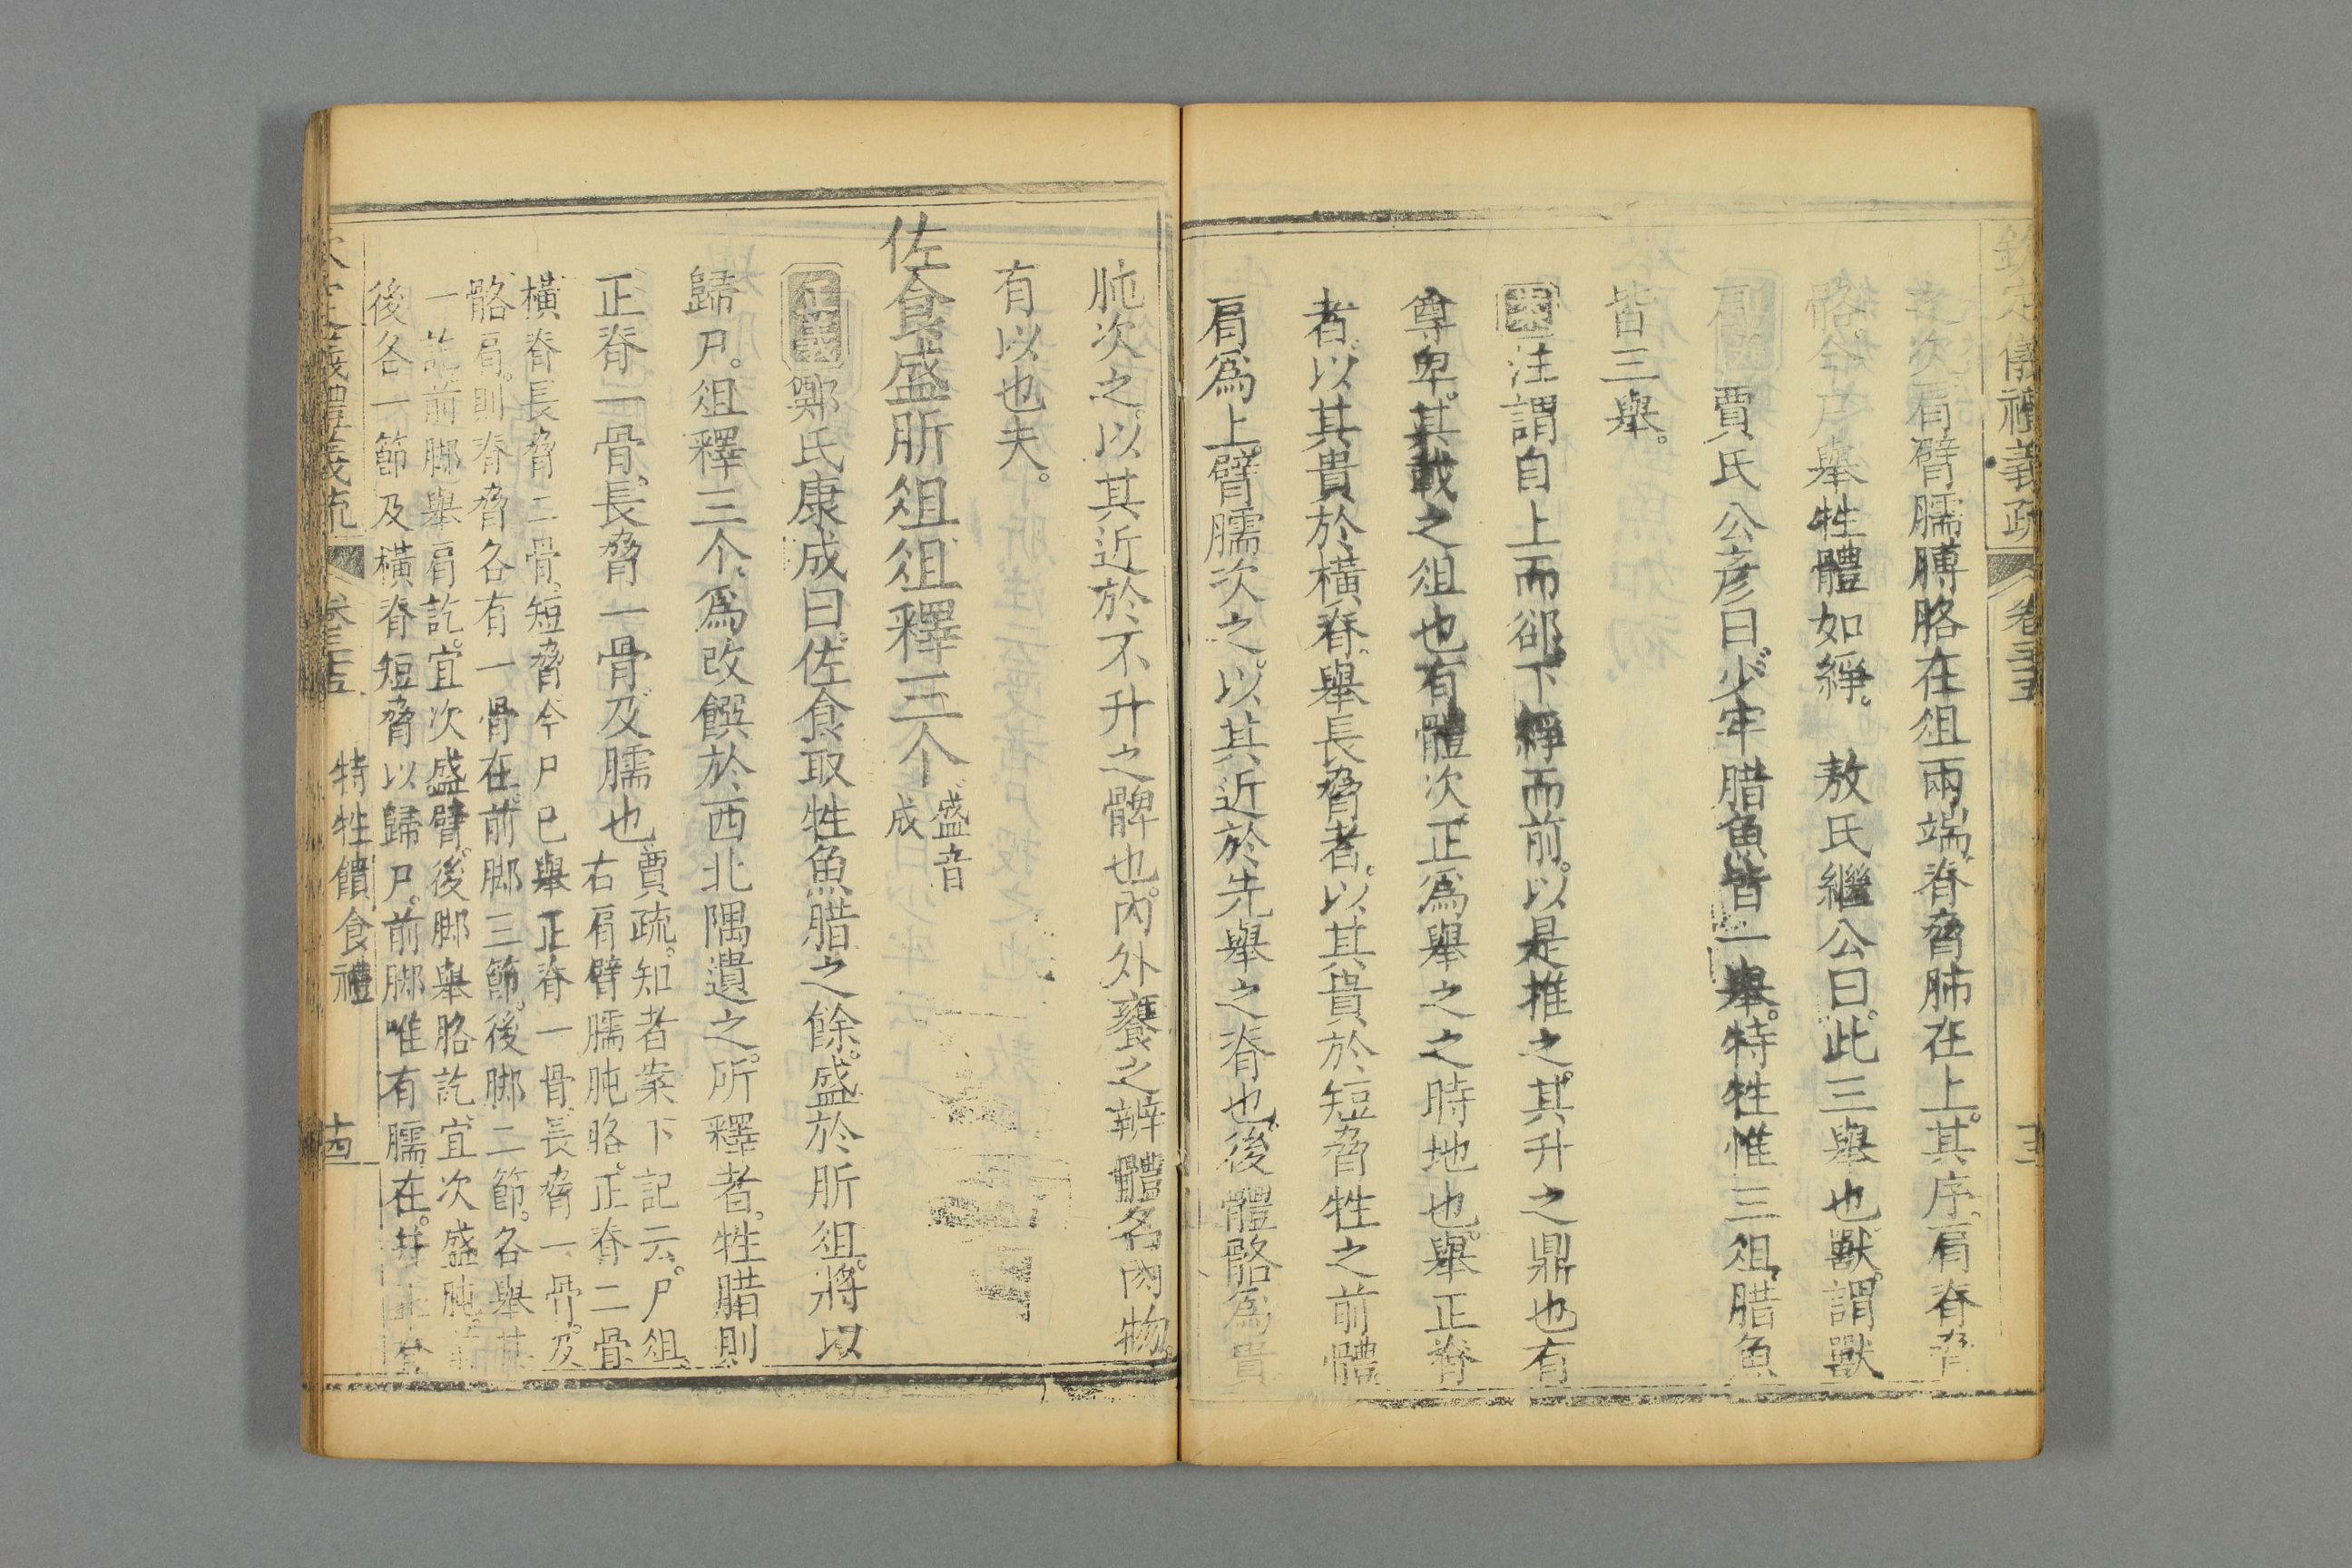 欽定儀禮義疏 卷三十五
之次肩臂臑膊胳在俎兩端脊脅肺在上其序肩脊脅
骼今尸舉牲體如綷。 敖氏繼公曰此三舉也獸謂獸
賈氏公彥曰少牢腊魚皆一舉特牲惟三俎腊魚
皆三舉。
案注謂自上而郤下綷而前。以是推之其升之鼎也有
尊卑其載之俎也有體次正爲舉之之時地也舉正脊
者以其貴於橫脊舉長脅者以其貴於短脅牲之前體
肩爲上臂臑次之以其近於先舉之脊也後體骼爲貴
肫次之以其近於不升之髀也內外饔之辨體名肉物
有以也夫。
佐食盛肵俎俎釋三个 盛音
成
正義鄭氏康成曰佐食取牲魚腊之餘盛於肵俎將以
歸尸俎釋三个爲改饌於西北隅遺之所釋者牲腊則
正脊一骨長脅一骨及臑也 賈疏知者案下記云尸俎
右肩臂臑肫胳正脊二骨
橫脊長脅二骨短脅今尸已舉正脊一骨長脅一骨及
骼肩則脊脅各有一骨在前脚三節後脚二節各舉其
一訖前脚舉肩訖宜次盛臂後脚舉胳訖宜次盛肫
後各一節及橫脊短脅以歸尸前脚唯有臑在并
義疏 卷三十五 特牲饋食禮 十四